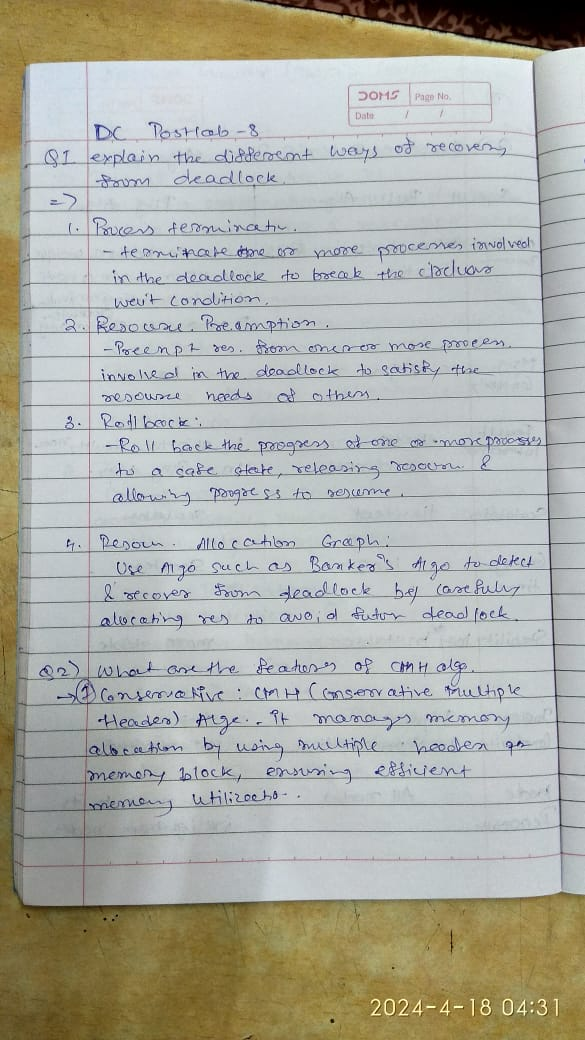 DOMS Page No.
Date / /
DC Postlab - 8
Q1 explain the different ways of recovery
from deadlock.
=>
1. Process terminatn.
- terminate one or more processes involved
in the deadlock to break the circluar
wait condition.
2. Resource Preemption.
- Preempt res. from one or more process
involved in the deadlock to satisfy the
resource needs of others.
3. Rollback:
- Roll back the progress of one or more processes
to a safe state, releasing resourc &
allowing progress to resume.
4. Resour. Allocation Graph:
Use Algo such as Banker's Algo to detect
& recover from deadlock by carefuly
allocating res to avoid futur deadlock.
Q2) What are the features of CMH algo.
→ ① Conservative: CMH (Conservative Multiple
Header) Algo. it manages memory
allocation by using multiple header
memory block, ensuring efficient
memory utilizatio-.
2024-4-18 04:31